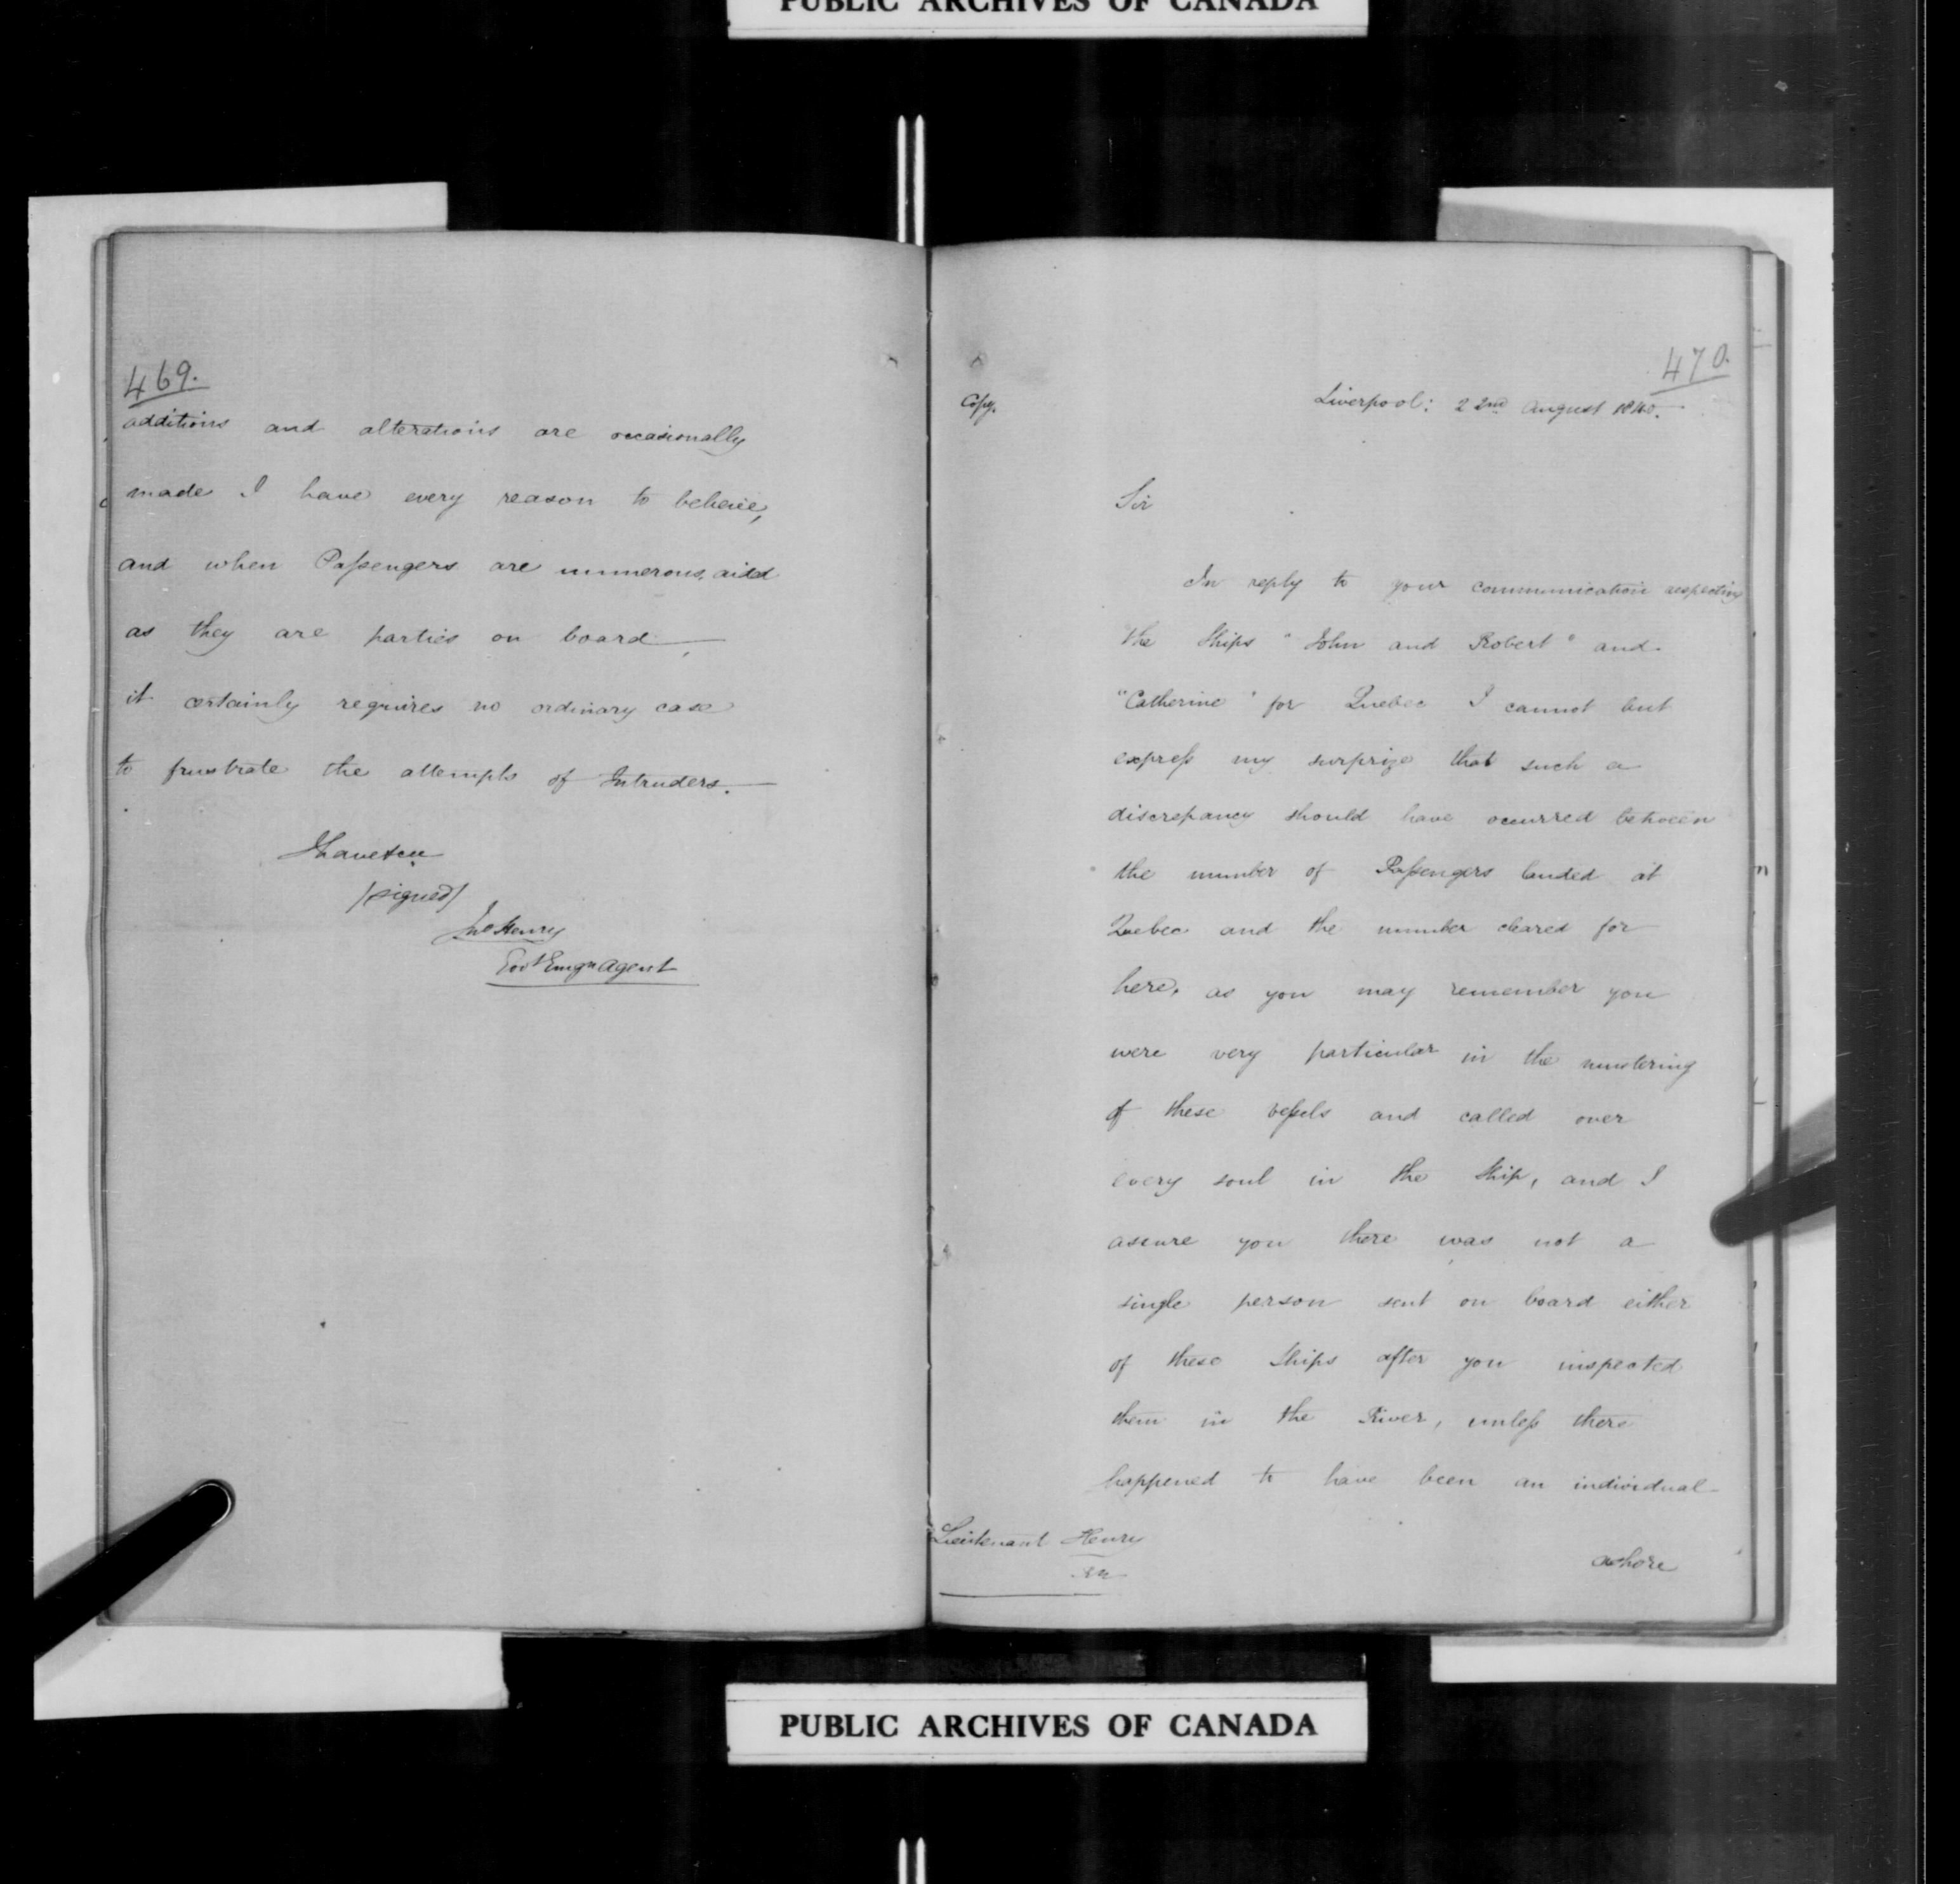 PUBLIC ARCHIVES OF CANADA
469.
additions and alterations are occasionally
made I have every reason to believe,
and when Passengers are numerous, aided
as they are parties on board,
it certainly requires no ordinary case
to frustrate the attempts of Intruders.
I have &c
(signed)
Jno Henry
Govt Emign Agent
470.
Copy.
Liverpool: 22nd August 1840.
Sir
In reply to your communication respecting
the Ships "John and Robert" and
"Catherine" for Quebec I cannot but
express my surprize that such a
discrepancy should have occurred between
the number of Passengers landed at
Quebec and the number cleared for
here, as you may remember you
were very particular in the mustering
of these vessels and called over
every soul in the Ship, and I
assure you there was not a
single person sent on board either
of these Ships after you inspected
them in the River, unless there
happened to have been an individual
Lieutenant Henry
RN
ashore
PUBLIC ARCHIVES OF CANADA